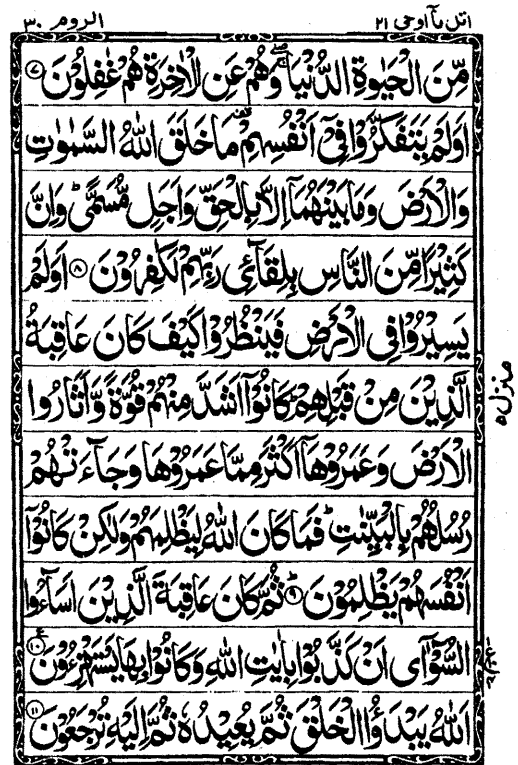 اتل مآ اوحی ٢١
الروم ٣٠
مِّنَ الْحَیٰوةِ الدُّنْیَا ۖ وَهُمْ عَنِ الْاٰخِرَةِ هُمْ غٰفِلُوْنَ ﴿٧﴾
اَوَلَمْ یَتَفَكَّرُوْا فِیْۤ اَنْفُسِهِمْ مَا خَلَقَ اللّٰهُ السَّمٰوٰتِ
وَالْاَرْضَ وَمَا بَیْنَهُمَاۤ اِلَّا بِالْحَقِّ وَاَجَلٍ مُّسَمًّی ؕ وَاِنَّ
كَثِیْرًا مِّنَ النَّاسِ بِلِقَآئِ رَبِّهِمْ لَكٰفِرُوْنَ ﴿٨﴾ اَوَلَمْ
یَسِیْرُوْا فِی الْاَرْضِ فَیَنْظُرُوْا كَیْفَ كَانَ عَاقِبَةُ
الَّذِیْنَ مِنْ قَبْلِهِمْ ؕ كَانُوْۤا اَشَدَّ مِنْهُمْ قُوَّةً وَّاَثَارُوا
الْاَرْضَ وَعَمَرُوْهَاۤ اَكْثَرَ مِمَّا عَمَرُوْهَا وَجَآءَتْهُمْ
رُسُلُهُمْ بِالْبَیِّنٰتِ ؕ فَمَا كَانَ اللّٰهُ لِیَظْلِمَهُمْ وَلٰكِنْ كَانُوْۤا
اَنْفُسَهُمْ یَظْلِمُوْنَ ؕ﴿٩﴾ ثُمَّ كَانَ عَاقِبَةَ الَّذِیْنَ اَسَآءُوا
السُّوْٓاٰۤی اَنْ كَذَّبُوْا بِاٰیٰتِ اللّٰهِ وَكَانُوْا بِهَا یَسْتَهْزِءُوْنَ ﴿١٠﴾
اَللّٰهُ یَبْدَؤُا الْخَلْقَ ثُمَّ یُعِیْدُهٗ ثُمَّ اِلَیْهِ تُرْجَعُوْنَ ﴿١١﴾
منزل ٥